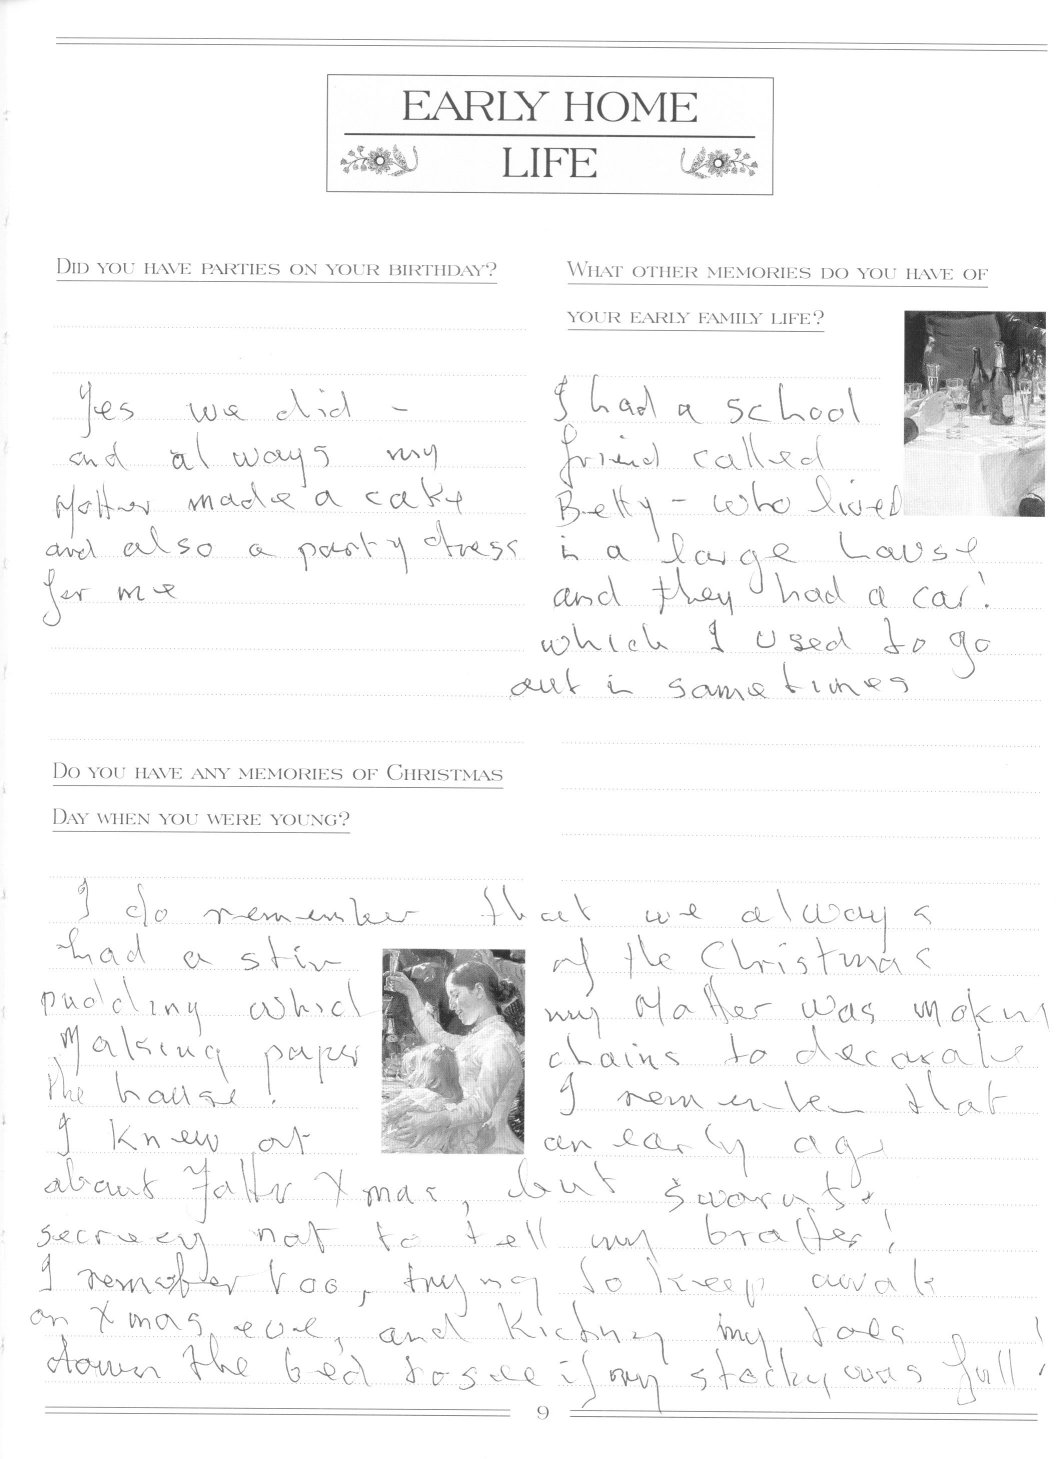 EARLY HOME
LIFE
DID YOU HAVE PARTIES ON YOUR BIRTHDAY?
Yes we did -
and always my
Mother made a cake
and also a party dress
for me
WHAT OTHER MEMORIES DO YOU HAVE OF
YOUR EARLY FAMILY LIFE?
I had a school
friend called
Betty - who lived
in a large house
and they had a car!
which I used to go
out in sometimes
DO YOU HAVE ANY MEMORIES OF CHRISTMAS
DAY WHEN YOU WERE YOUNG?
I do remember that we always
had a stir of the Christmas
pudding which my Mother was making
Making paper chains to decorate
the house! I remember that
I knew at an early age
about Father Xmas, but sworn to
secrecy not to tell my brother!
I remember too, trying to keep awake
on Xmas eve, and kicking my toes
down the bed to see if my stocky was full!
9